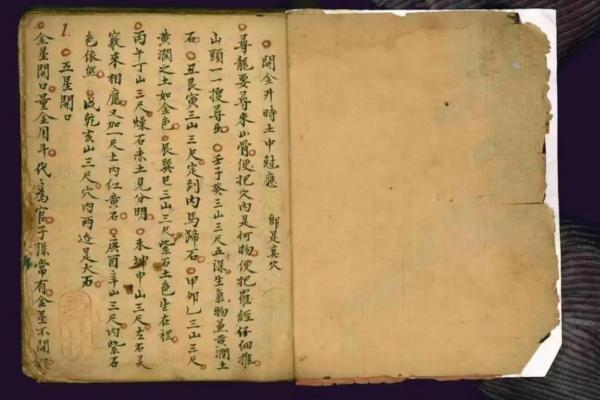 開金井時土中尅應 即是真穴
尋龍要尋來山骨便把穴內是何物便把羅經仔細推
山頭一一搜尋出 壬子癸三山三尺五深生氣物並黃潤土
石 丑艮寅三山三尺定到內馬蹄石 甲卯乙三山三尺
黃潤之土如金色 辰巽巳三山三尺紫石土色生在裡
丙午丁山三尺燥石赤土見分明 未坤申山三尺左右
來相應又加一尺土內紅黃石 庚酉辛山三尺內紫石
色依然 戌乾亥山三尺穴內兩边是大石
1. 五星開口
金星開口量金用斗 代為官子孫常有金星不開